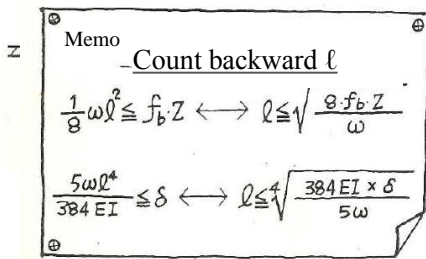 Memo
Count backward ℓ
1/8 ωℓ² ≦ f_b·Z ⟷ ℓ ≦ √(8·f_b·Z / ω)
5ωℓ⁴ / 384 EI ≦ δ ⟷ ℓ ≦ ∜(384 EI × δ / 5ω)